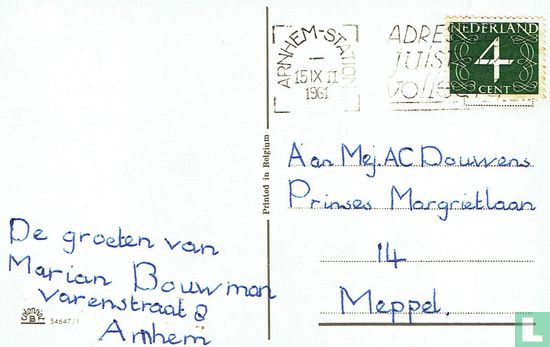 ARNHEM-STATION
15 IX 17
1961
ADRE
JUIST
NEDERLAND
4
CENT
Printed in Belgium
Aan Mej. AC Douwens
Prinses Margrietlaan
14
Meppel.
De groeten van
Marian Bouwman
Varenstraat 8
Arnhem
54647/1
L